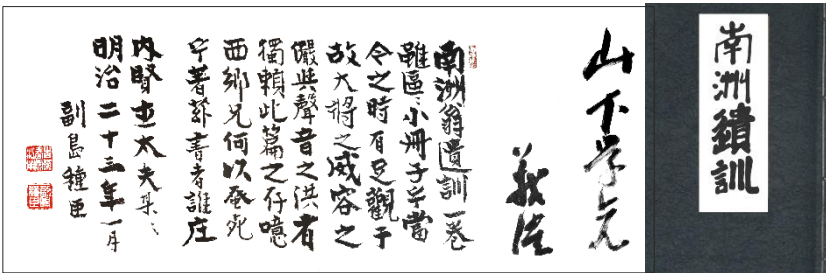 南洲遺訓
南洲翁遺訓一巻
雖區〻小冊子乎當
今之時有足觀于
故大將之威容之
儼與聲音之洪者
獨頼此篇之存噫
西郷兄何以蚤死
乎著茲書者誰庄
内賢士太夫某〻
明治二十三年一月
副島種臣